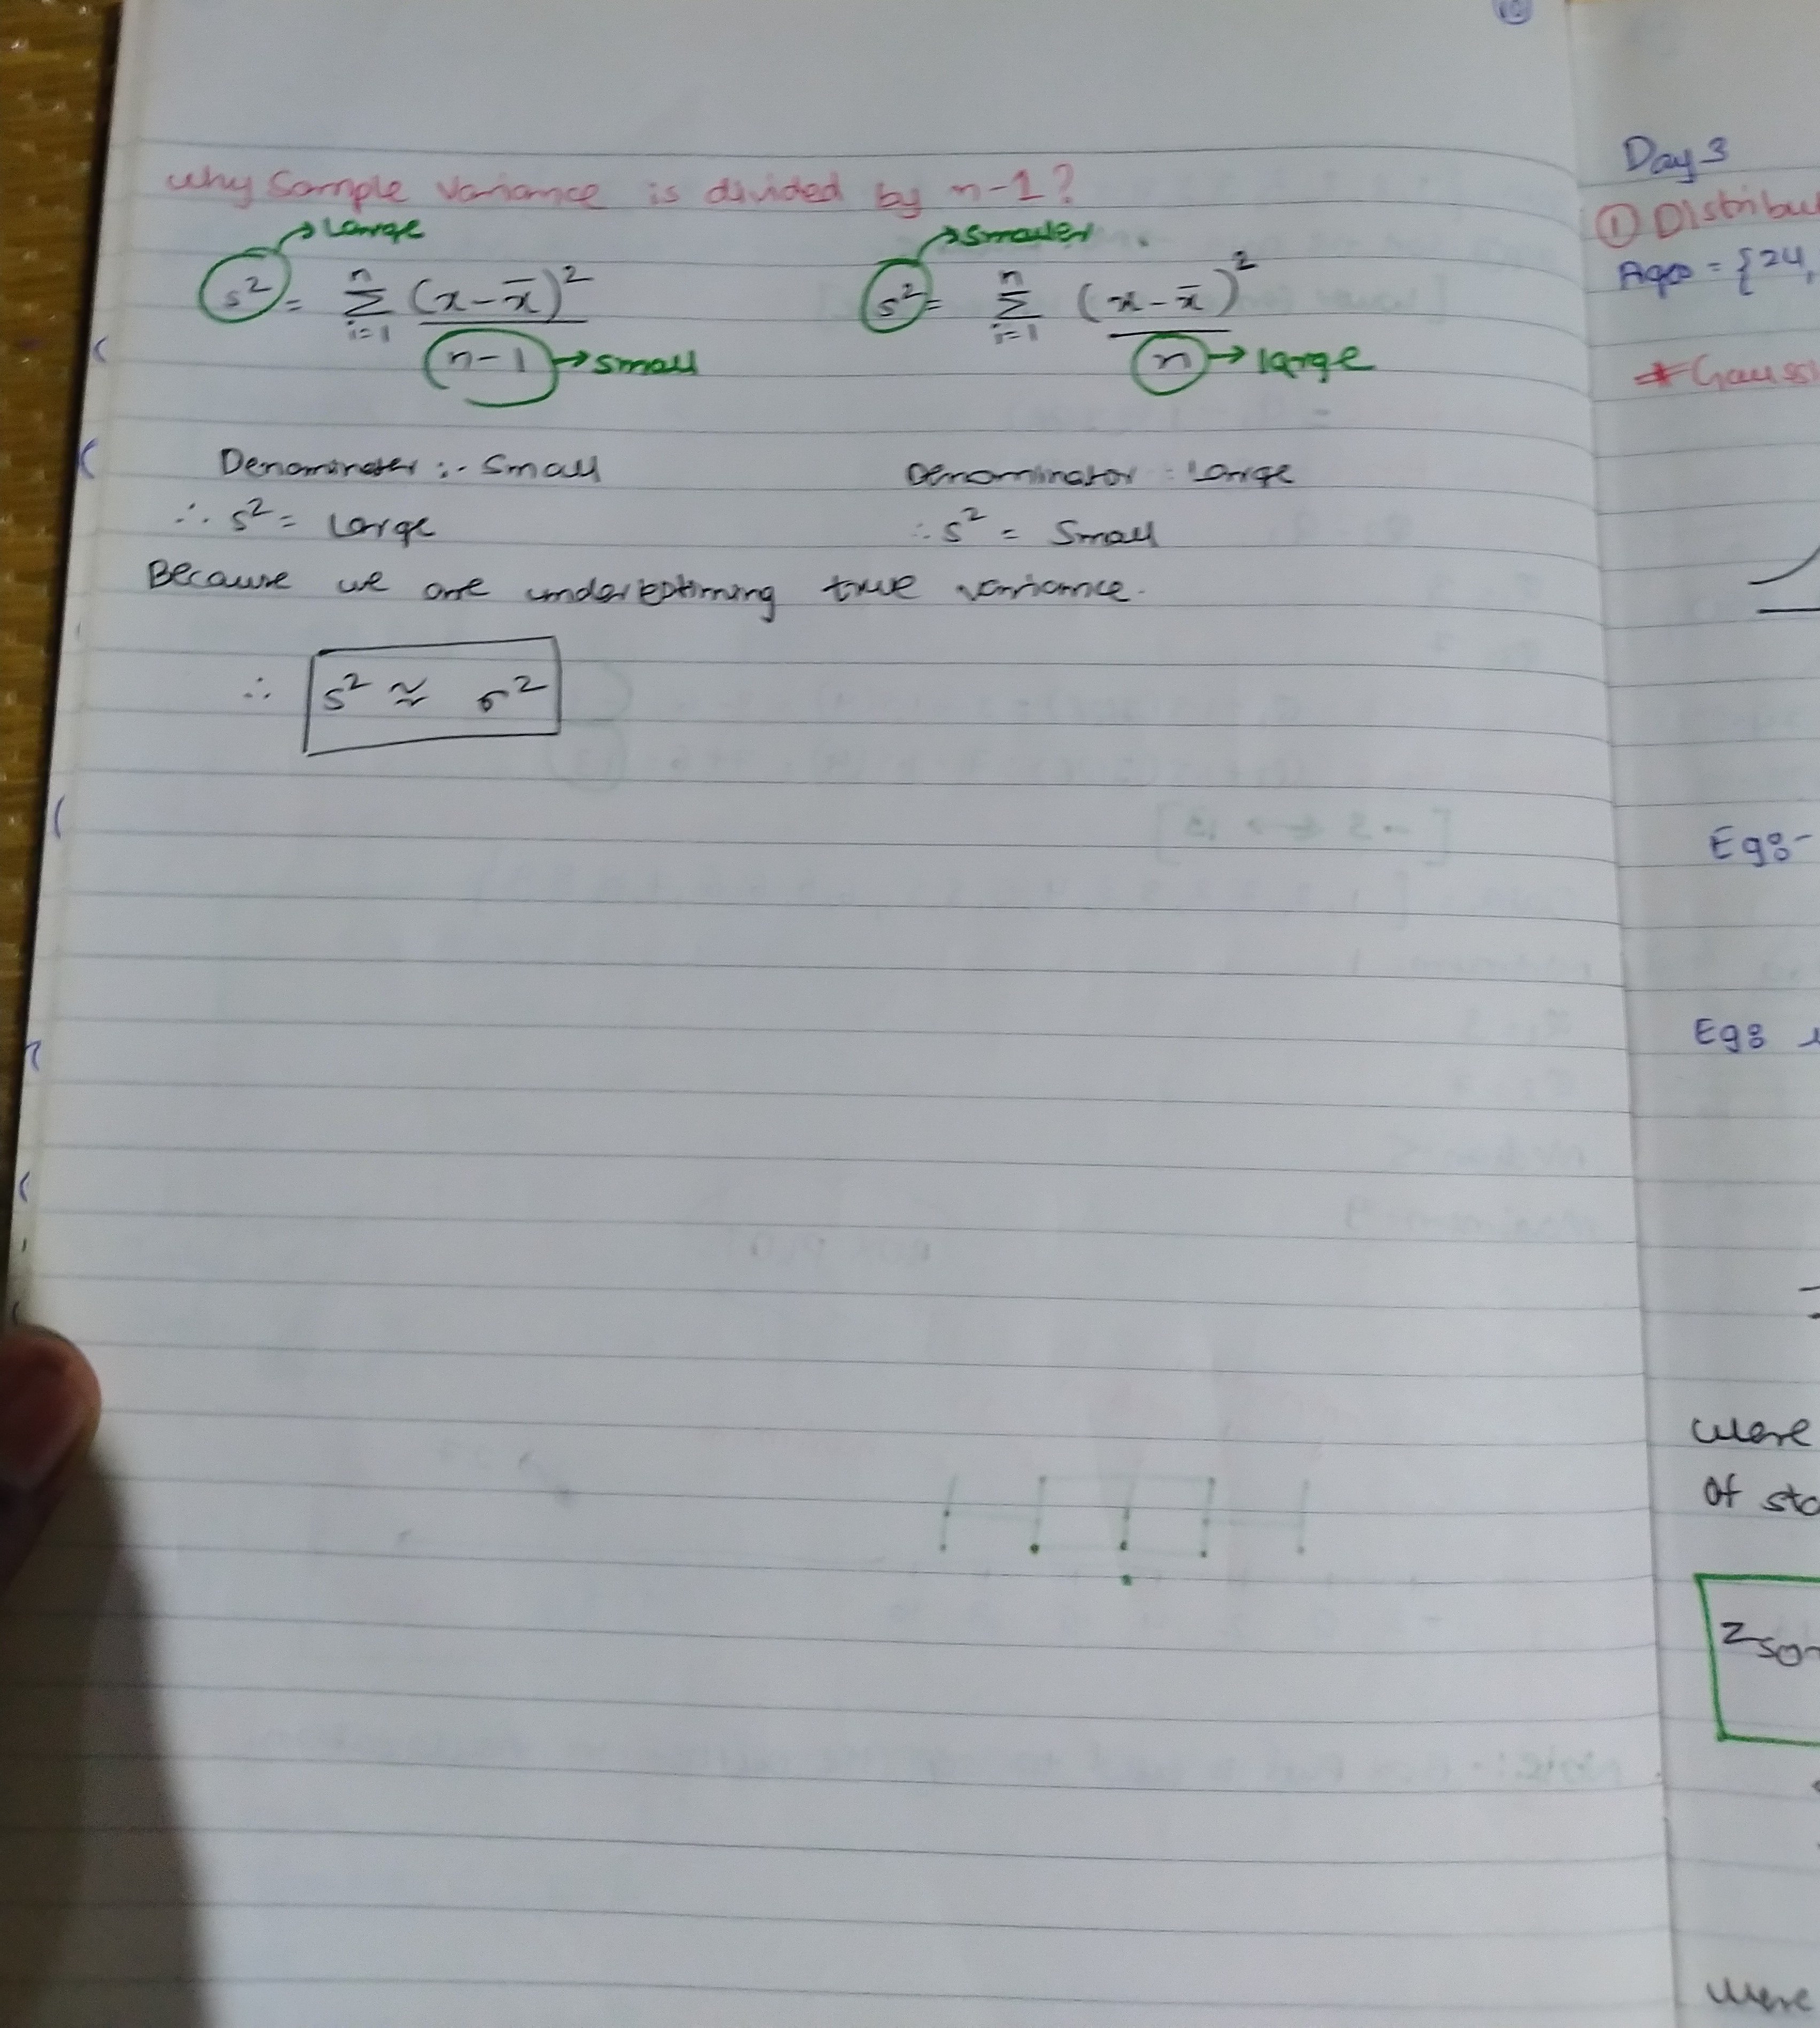 why Sample Variance is divided by n-1?
→ Large
s² = n Σ i=1 (x - x̄)² / (n-1) → small
→ smaller
s² = n Σ i=1 (x - x̄)² / n → large
Denominator :- Small
∴ s² = Large
Denominator : Large
∴ s² = Small
Because we are underestiming true variance.
∴ s² ≈ σ²
Day 3
① Distribu
Age = {24,
* Gaussi
Eg:-
Eg:
were
of sta
Z
were